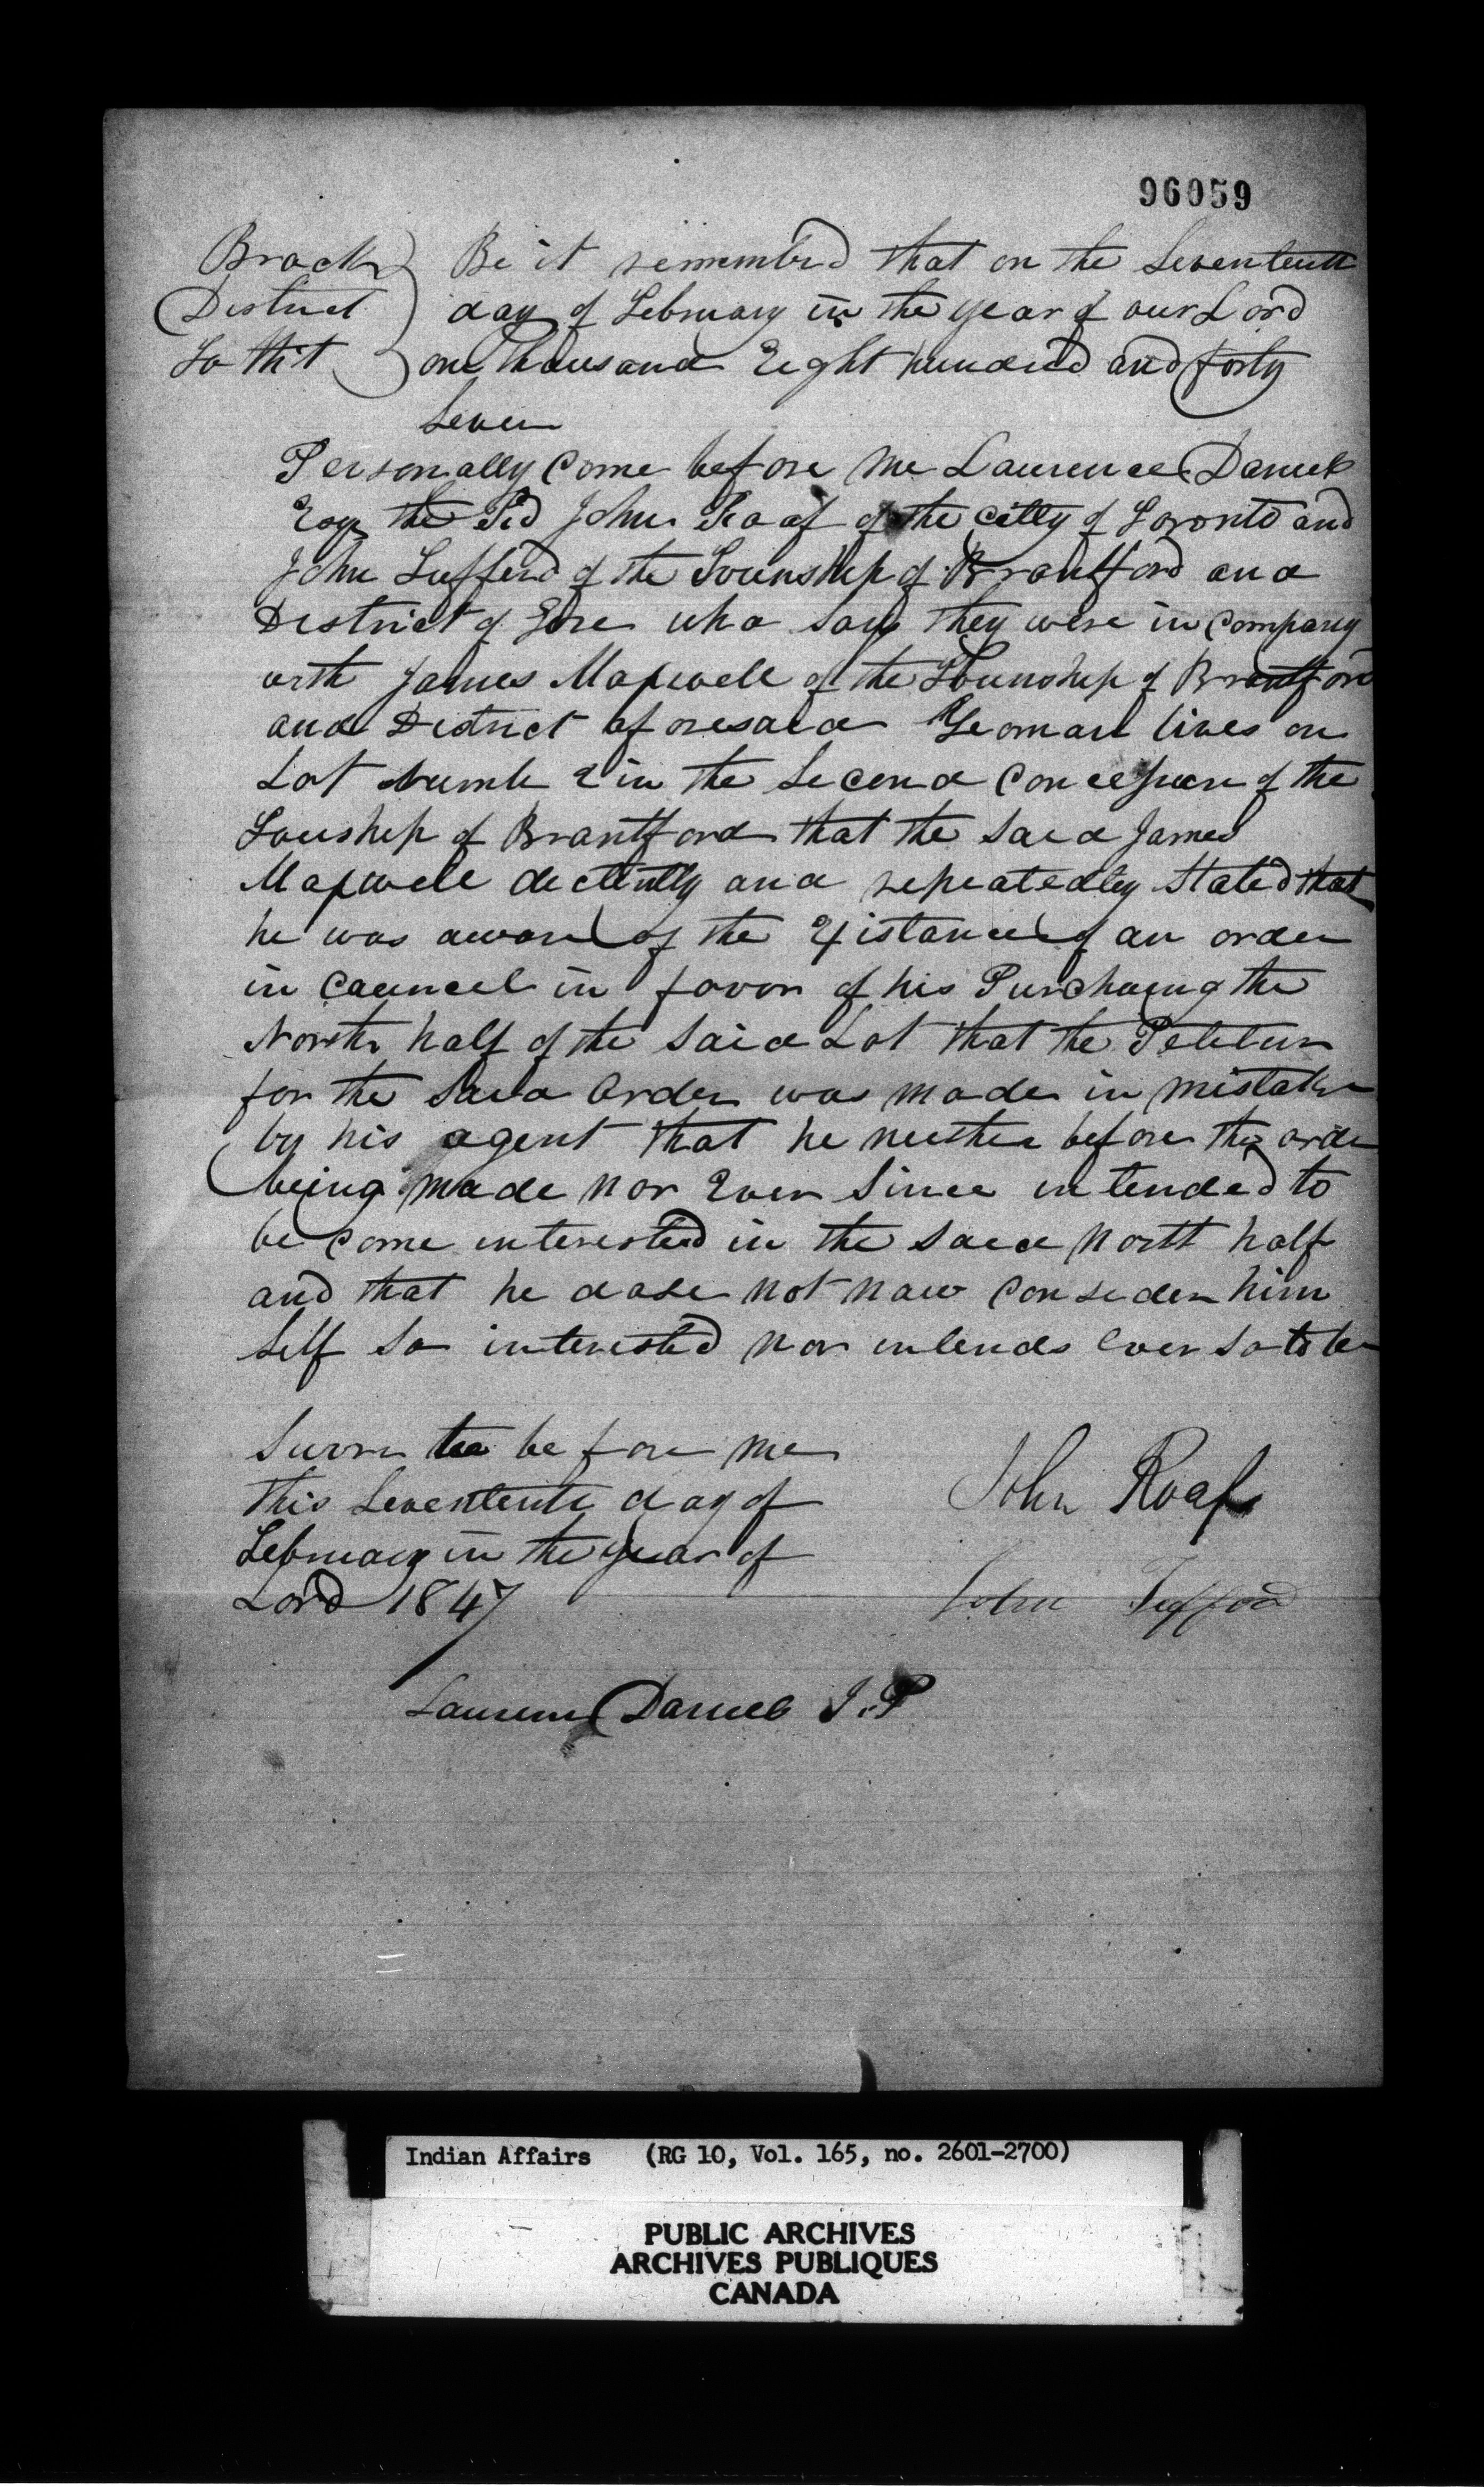 96059
Brock Be it rememberd that on the Seventeenth
District day of February in the year of our Lord
To Wit one thousand Eight hundred and forty
Seven
Personally Come before me Laurence Daniels
Esqr the Rvd John Roaf of the citty of Toronto and
John Tufford of the Township of Brantford and
District of Gore who say they were in company
with James Maxwell of the Township of Brantford
and District aforesaid Yeoman lives on
Lot numb 2 in the Second Concession of the
Township of Brantford that the said James
Maxwell and repeatedly Stated that
he was aware of the Existance of an order
in Council in favor of his Purchasing the
North half of the Said Lot that the Petition
for the Said Order was made in mistake
by his agent that he neither before the order
being made nor Ever Since intended to
be come interested in the said North half
and that he dose not now Consider him
Self So interested nor intends ever so to be
Sworn to before me
this Sevententh day of John Roaf
February in the year of
Lord 1847 John Tufford
Laurence Daniels J.P
Indian Affairs (RG 10, Vol. 165, no. 2601-2700)
PUBLIC ARCHIVES
ARCHIVES PUBLIQUES
CANADA